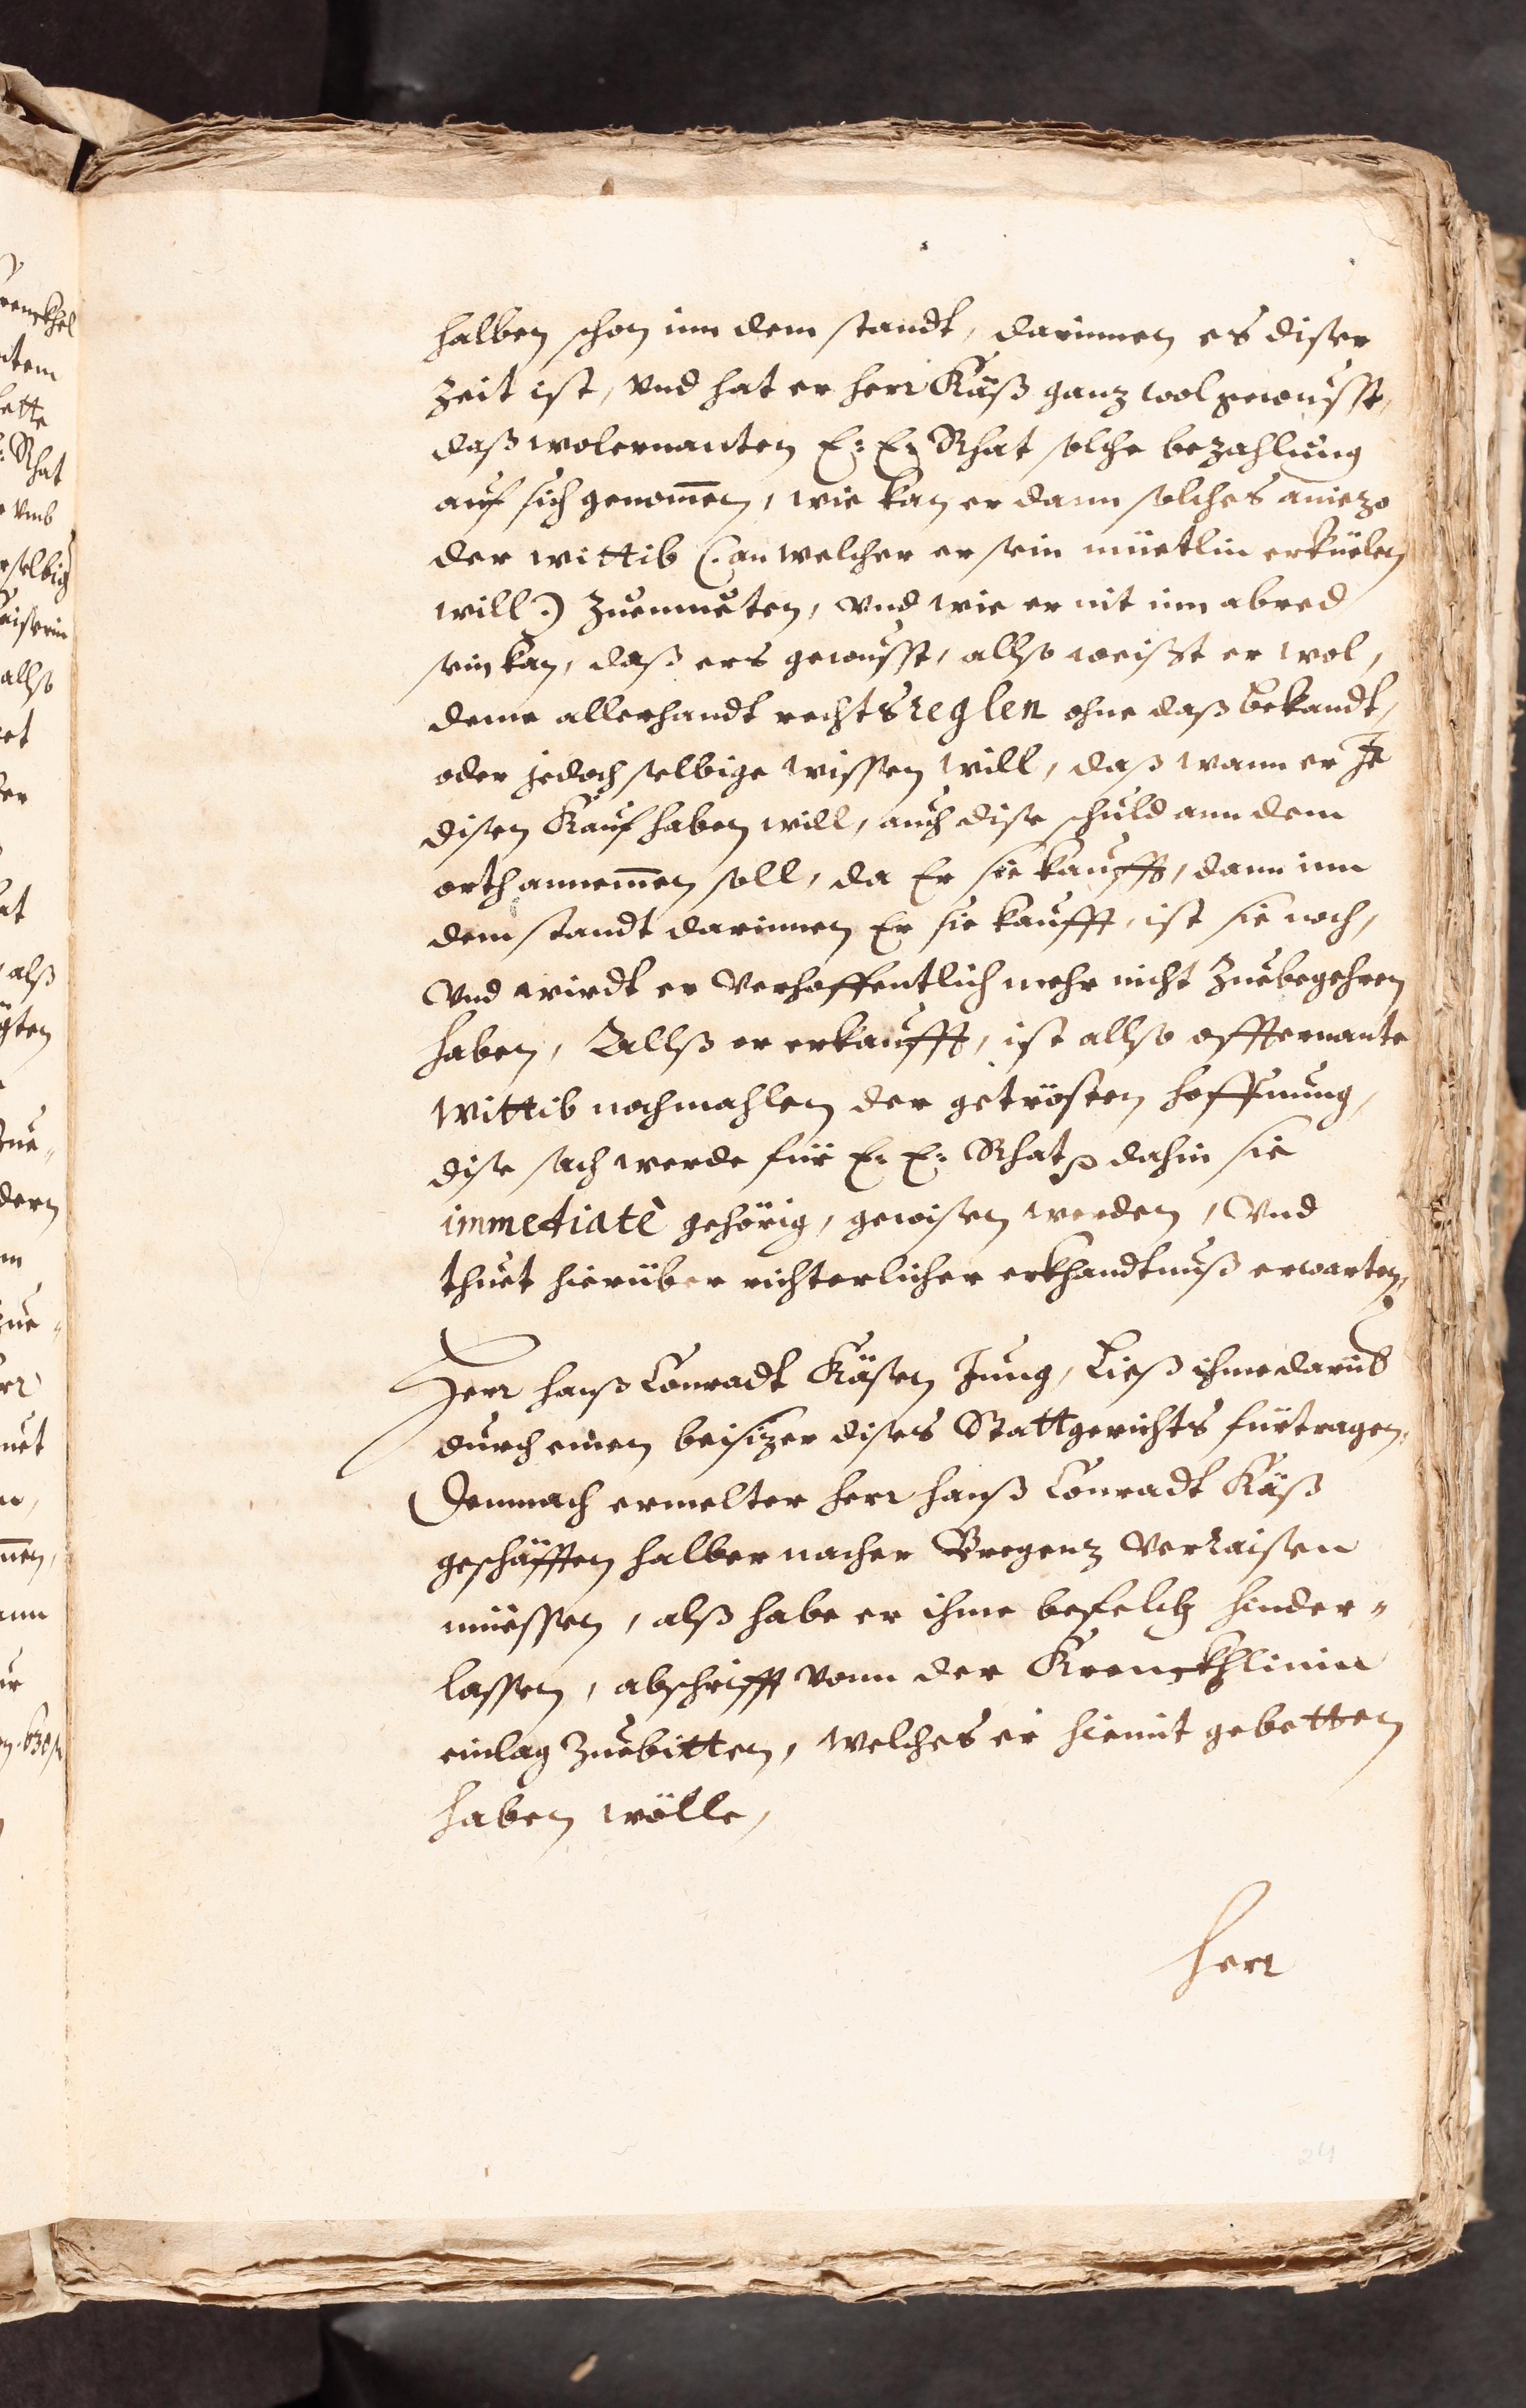 halben schon inn dem standt, darinnen es diser
Zeit ist, Vnd hat er herr Käß ganz wol gewusst,
daß wolernanten E: E: Rhat solche bezahlung
auf sich genom̄en, wie kan er dann solches aniezo
der wittib (: an welcher er sein müetlin erküelen
will :) Zuemueten, vnd wie er nit inn abred
sein kan, daß ers gewusst, allso weißt er wol,
deme allerhandt rechtsreglen ohne daß bekandt,
oder jedoch selbige wissen will, daß wann er Je
disen Kauf haben will, auch dise schuld ann dem
orth annem̄en soll, da Er sie kaufft, dann inn
dem standt darinnen Er sie kaufft, ist sie noch,
Vnd wirdt er Verhoffentlich mehr nicht Zuebegehren
haben, Allß er erkaufft, ist allso offternante
Wittib nochmahlen der getrösten hoffnung,
dise sach werde für E: E: Rhat dahin sie
immediatè gehörig, gewisen werden, Vnd
thuet hierüber richterlicher erkhandtnuß erwarten,
Herr hanß Conradt Käsen Jung, Ließ ihme darüb
durch einen beisizer dises Stattgerichts fürtragen.
Demnach ermelter herr hanß Conradt Käß
geschäfften halber nacher Bregenz Verraisen
müessen, alß habe er ihme befelch hinder-
lassen, abschrifft vonn der Krenckhlinin
einlag Zuebitten, welches er hiemit gebetten
haben wölle,
herr
24